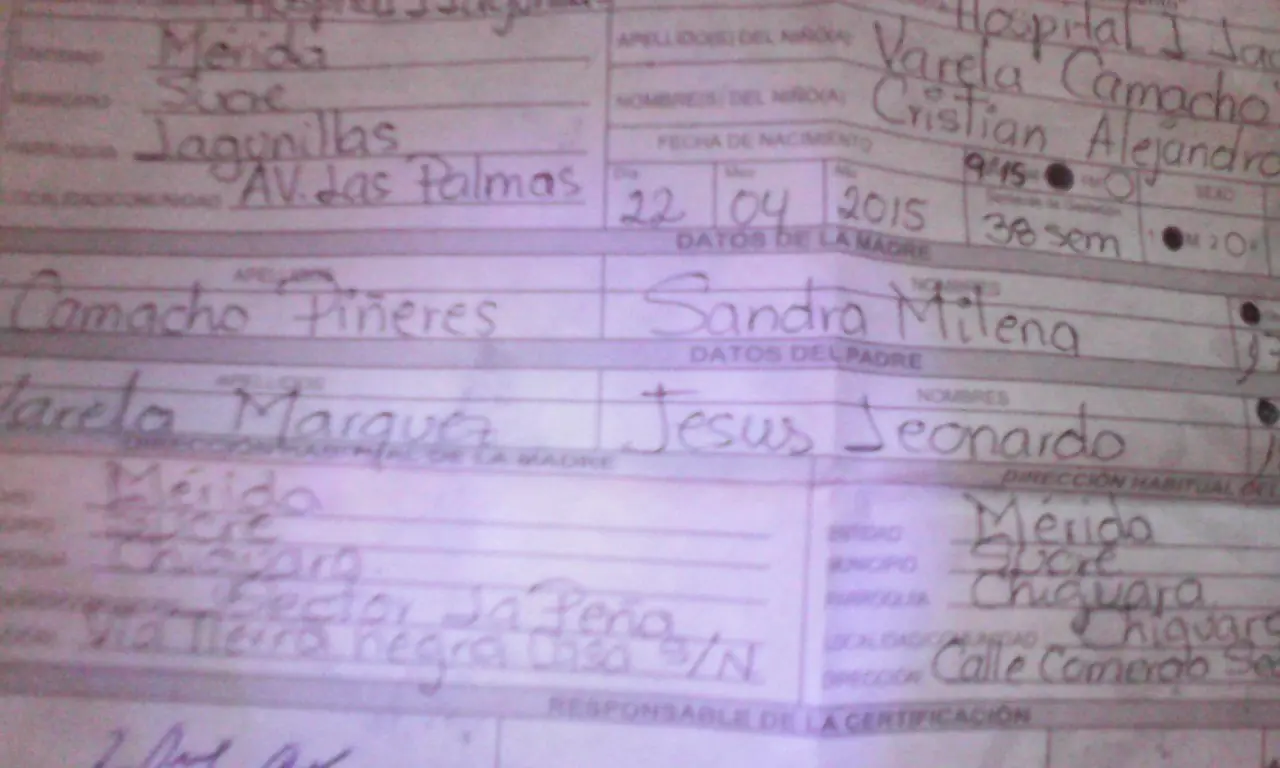 Mérida
Sucre
Lagunillas
AV. Las Palmas
Hospital I
APELLIDO(S) DEL NIÑO(A) Varela Camacho
NOMBRE(S) DEL NIÑO(A) Cristian Alejandro
FECHA DE NACIMIENTO
22 04 2015 9:45 38 sem SEXO
DATOS DE LA MADRE
APELLIDOS NOMBRES
Camacho Piñeres Sandra Milena
DATOS DEL PADRE
APELLIDOS NOMBRES
Varela Marquez Jesus Leonardo
DIRECCIÓN HABITUAL DE LA MADRE
Mérida
Sucre
Chiguara
Sector La Peña
Via Tierra negra Casa S/N
DIRECCIÓN HABITUAL DEL
ENTIDAD Mérida
MUNICIPIO Sucre
PARROQUIA Chiguara
LOCALIDAD/COMUNIDAD Chiguara
DIRECCIÓN Calle Comercio
RESPONSABLE DE LA CERTIFICACIÓN